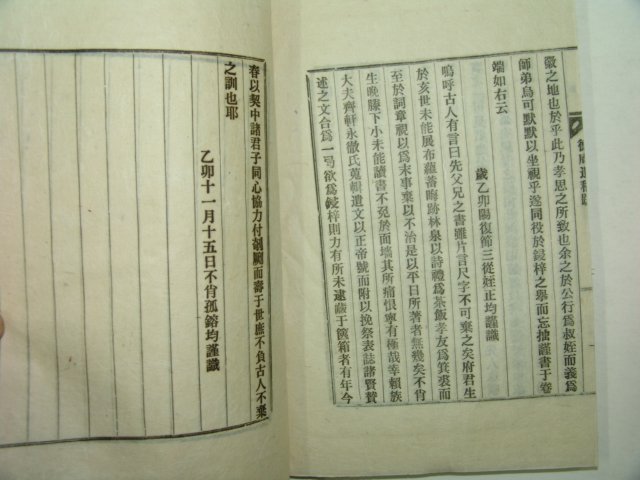 徽之地也於乎此乃孝思之所致也余之於公行爲叔姪而義爲
師弟烏可默默以坐視乎遂同役於鋟梓之擧而忘拙謹書于卷
端如右云
歲乙卯陽復節三從姪正均謹識
嗚呼古人有言曰先父兄之書雖片言尺字不可棄之矣府君生
於亥世未能展布蘊蓄晦跡林泉以詩禮爲茶飯孝友爲箕裘而
至於詞章視以爲末事棄以不治是以平日所著者無幾矣不肖
生晩膝下小未能讀書不免於面墻其所痛恨寧有極哉幸賴族
大夫齊軒永徹氏蒐輯遺文以正帝號而附以挽祭表誌諸賢贊
述之文合爲一弓欲爲鋟梓則力有所未逮藏于篋箱者有年今
春以契中諸君子同心協力付剞劂而壽于世庶不負古人不棄
之訓也耶
乙卯十一月十五日不肖孤鎔均謹識